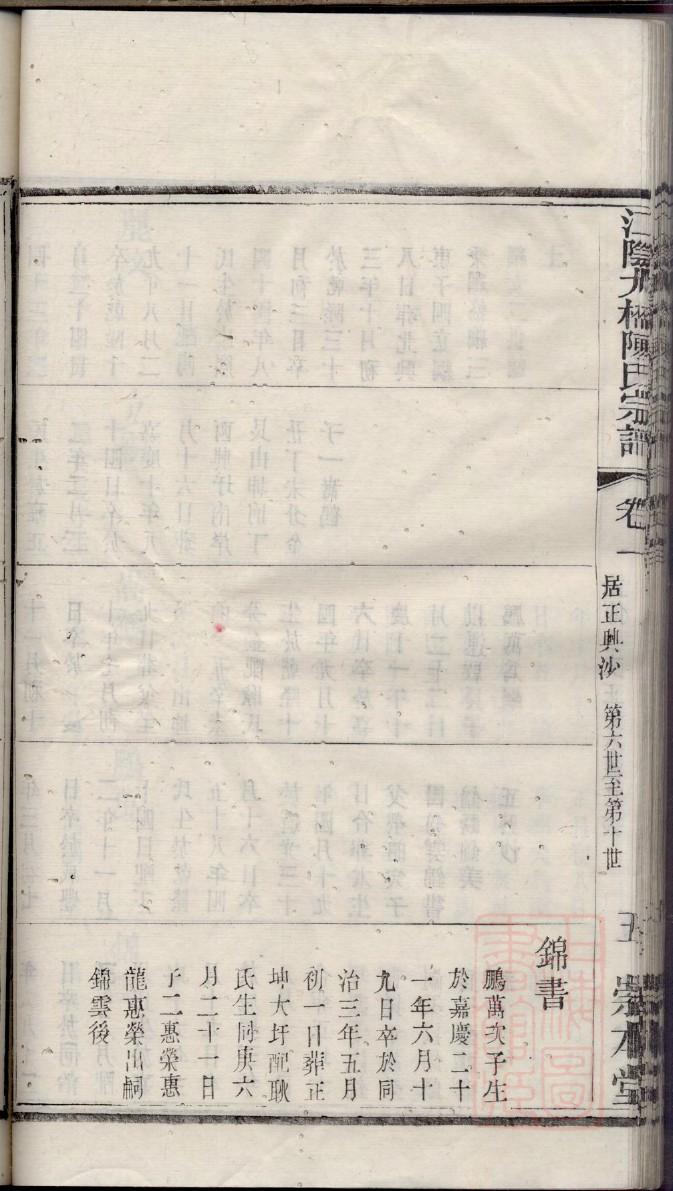 江陰九橋陳氏宗譜
卷一
居正興沙
第六世至第十世
五
崇本堂
錦書
鵬萬次子生
於嘉慶二十
一年六月十
九日卒於同
治三年五月
初一日葬正
坤大圩配耿
氏生同庚六
月二十一日
子二惠榮惠
龍惠榮出嗣
錦雲後